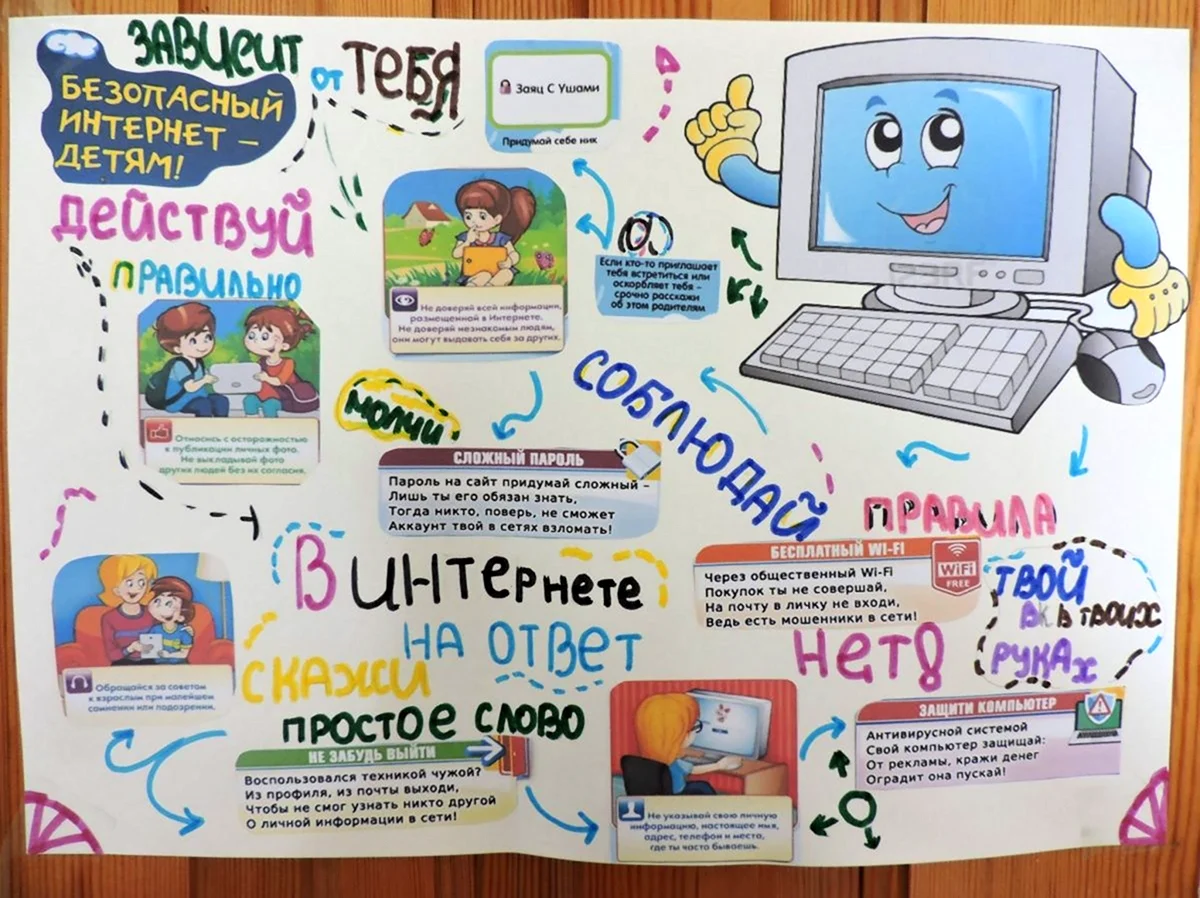 ЗАВИСИТ
от ТЕБЯ
БЕЗОПАСНЫЙ
ИНТЕРНЕТ –
ДЕТЯМ!
Заяц С Ушами
Придумай себе ник
ДЕЙСТВУЙ
ПРАВИЛЬНО
Не доверяй всей информации,
размещенной в Интернете.
Не доверяй незнакомым людям,
они могут выдавать себя за других.
@
Если кто-то приглашает
тебя встретиться или
оскорбляет тебя –
срочно расскажи
об этом родителям
Относись с осторожностью
к публикации личных фото.
Не выкладывай фото
других людей без их согласия.
МОЛЧИ
СЛОЖНЫЙ ПАРОЛЬ
Пароль на сайт придумай сложный –
Лишь ты его обязан знать,
Тогда никто, поверь, не сможет
Аккаунт твой в сетях взломать!
СОБЛЮДАЙ
ПРАВИЛА
В ИНТЕРНЕТЕ
БЕСПЛАТНЫЙ WI-FI
Через общественный Wi-Fi
Покупок ты не совершай,
На почту в личку не входи,
Ведь есть мошенники в сети!
WiFi
FREE
ТВОЙ
ВК В ТВОИХ
РУКАХ
НА ОТВЕТ
НЕТ
СКАЖИ
ПРОСТОЕ СЛОВО
Обращайся за советом
к взрослым при малейшем
сомнении или подозрении.
НЕ ЗАБУДЬ ВЫЙТИ
Воспользовался техникой чужой?
Из профиля, из почты выходи,
Чтобы не смог узнать никто другой
О личной информации в сети!
Не указывай свою личную
информацию, настоящее имя,
адрес, телефон и места,
где ты часто бываешь.
ЗАЩИТИ КОМПЬЮТЕР
Антивирусной системой
Свой компьютер защищай:
От рекламы, кражи денег
Оградит она пускай!